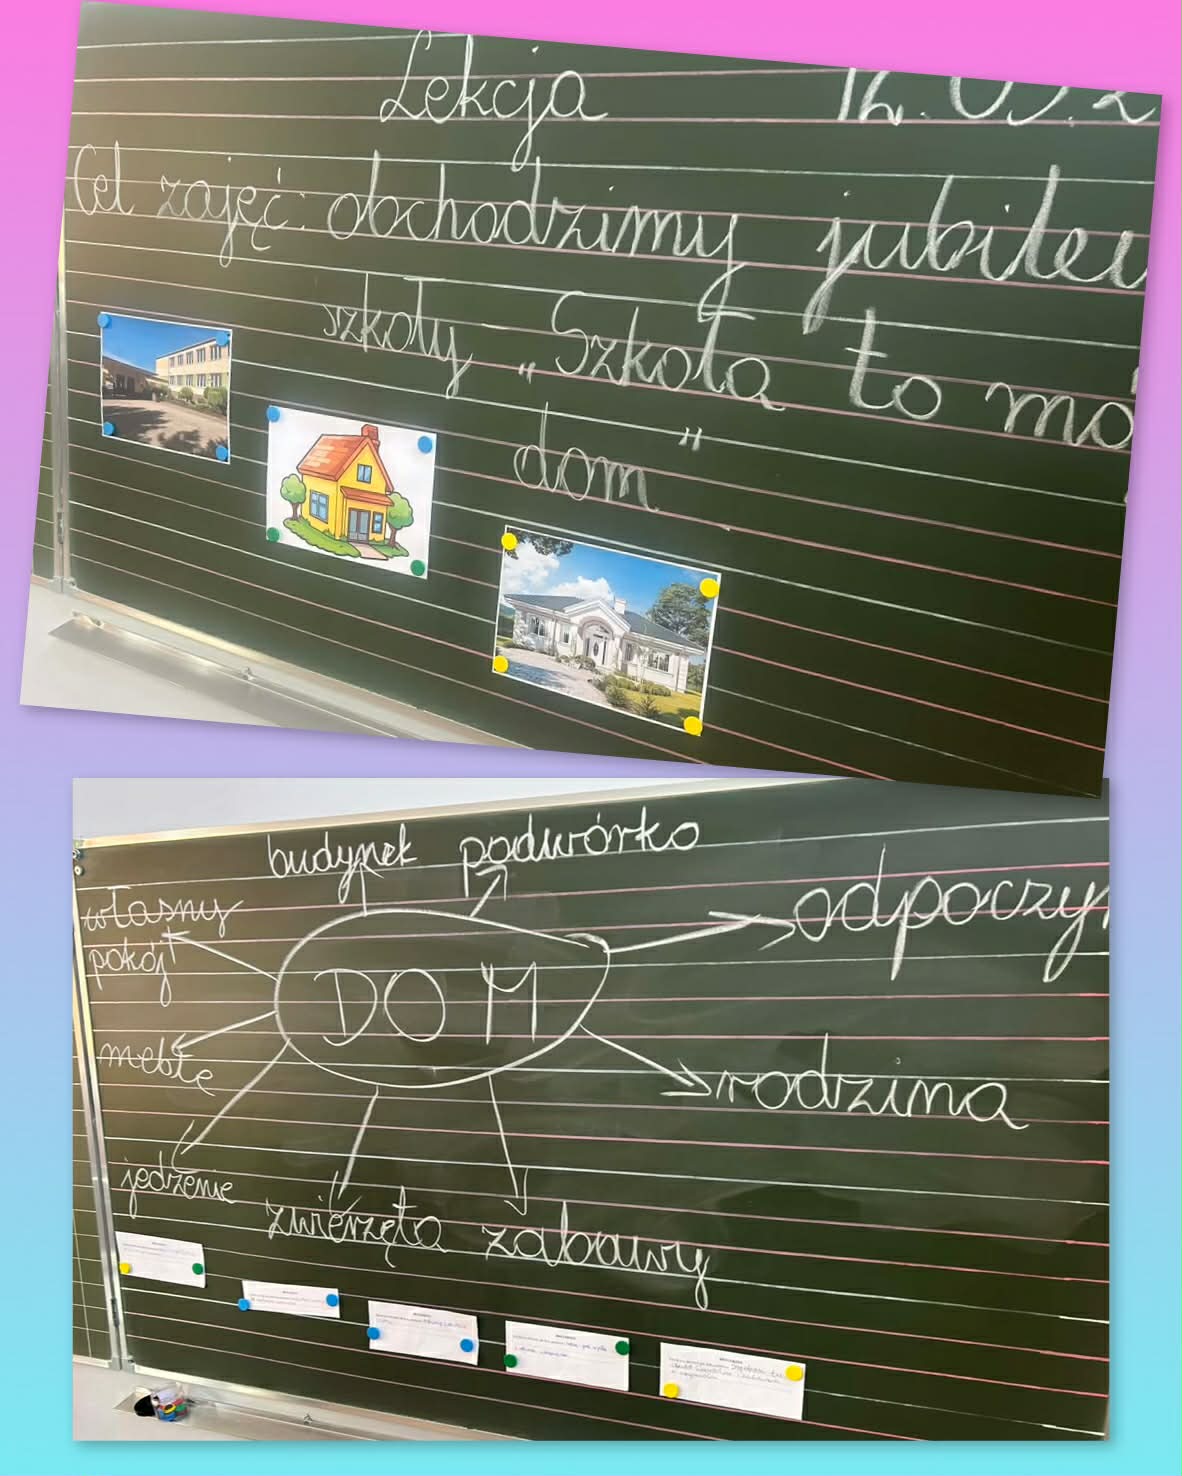 Lekcja 12.03.2
Cel zajęć: obchodzimy jubileu
szkoły - „Szkoła to mó
dom"
budynek podwórko
własny
pokój
odpoczyn
DOM
meble
rodzina
jedzenie
zwierzęta zabawy